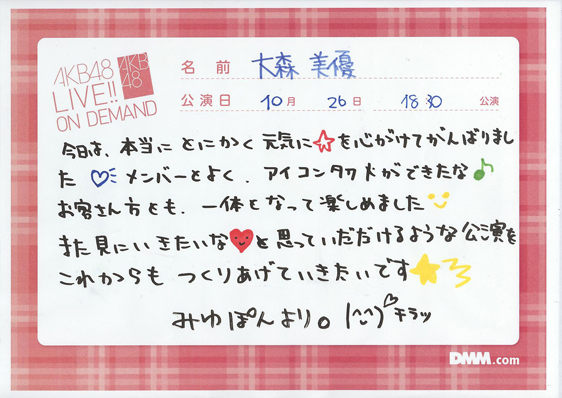 AKB48
LIVE!!
ON DEMAND
AKB
48
名前 大森美優
公演日 10月 26日 18:30 公演
今日は、本当に とにかく 元気に☆を心がけてがんばりまし
た ♡ メンバーとよく、アイコンタクトができたな♪
お客さん方とも、一体となって楽しめました
また見にいきたいな♥と思っていだだけるような公演を
これからも つくりあげていきたいです★
みゆぽんより。 (^^)♡キラッ
DMM.com